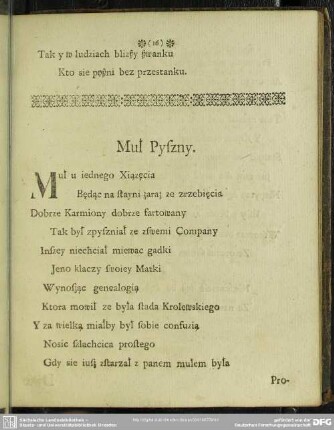 (16)
Tak y w ludziach bliſzy
Kto sie bez przestanku.
Muł Pyſzny.
Muł u iednego Xiążęcia
Będąc na ſtayni zaraz ze zrzebięcia
Dobrze Karmiony dobrze ſartowany
Tak był zpyſzniał ze zſwemi Company
Inſzey niechciał miewac gadki
Jeno klaczy ſwoiey Matki
Wynoſząc genealogią
Ktora mowił ze była ſtada Krolewskiego
Y za wielką miałby był ſobie confuzią
Nosic szlachcica prostego
Gdy sie iuſz zſtarzał z panem mulem była
Pro-